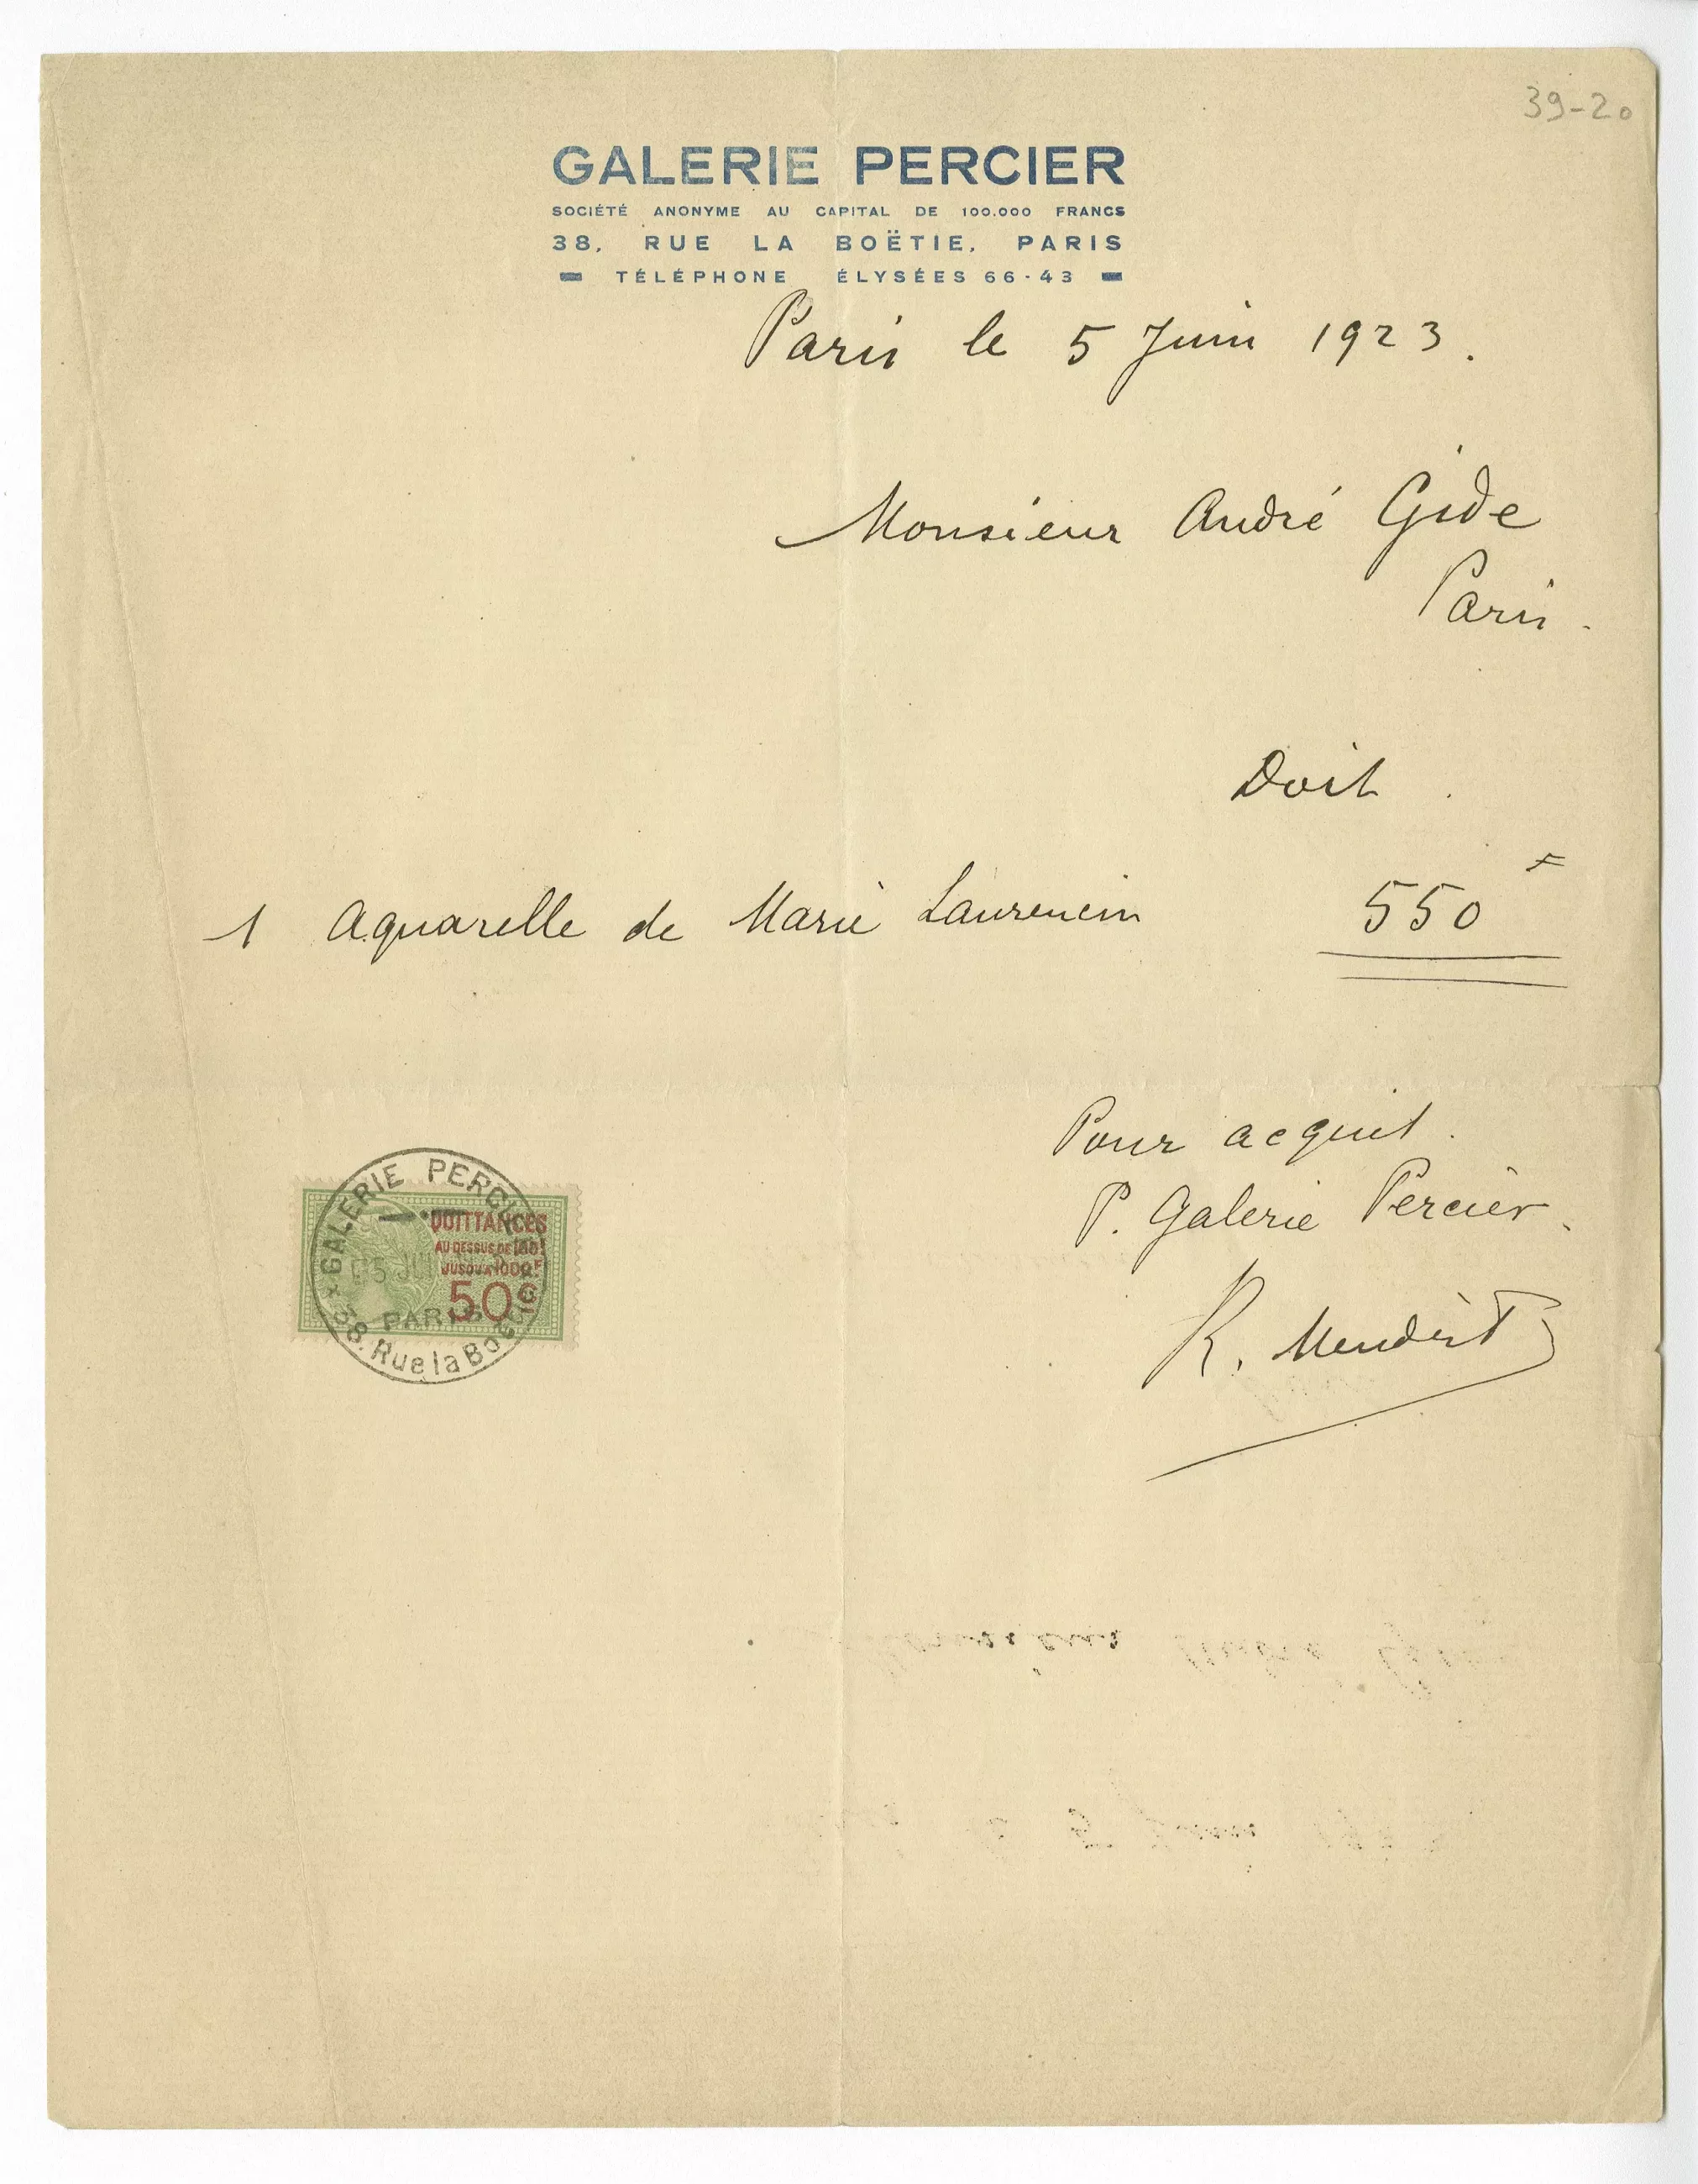 39-20
GALERIE PERCIER
SOCIÉTÉ ANONYME AU CAPITAL DE 100.000 FRANCS
38, RUE LA BOËTIE, PARIS
TÉLÉPHONE ÉLYSÉES 66-43
Paris le 5 Juin 1923.
Monsieur André Gide
Paris.
Doit.
1 Aquarelle de Marie Laurencin 550 F
Pour acquit.
P. Galerie Percier.
R.
GALERIE PERCIER
QUITTANCES
AU DESSUS DE 100F
JUSQU'A 1000F
50c
PARIS
38. Rue la Boëtie